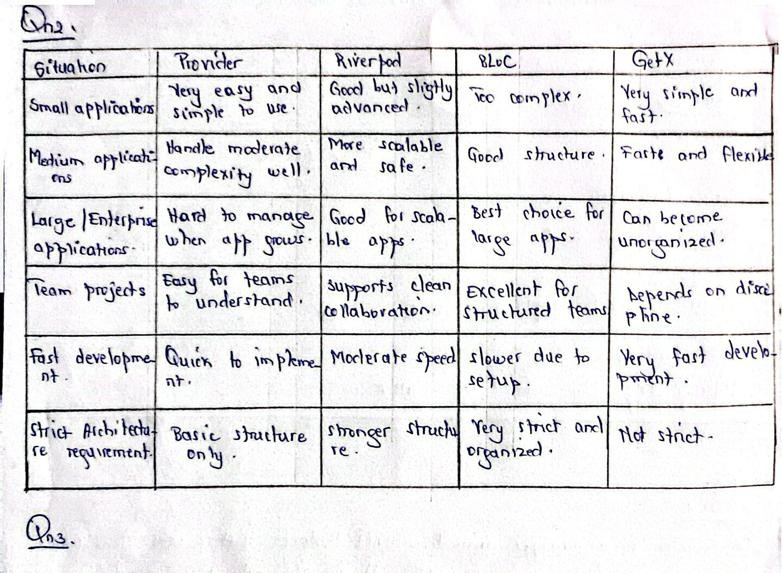 Qn2.
Situation Provider Riverpod BLoC GetX
Small applications Very easy and simple to use. Good but sligtly advanced. Too complex. Very simple and fast.
Medium applicati-ons Handle moderate complexity well. More scalable and safe. Good structure. Faste and flexible
Large/Enterprise applications. Hard to manage when app grows. Good for scala-ble apps. Best choice for large apps. Can become unorganized.
Team projects Easy for teams to understand. Supports clean collaboration. Excellent for structured teams Depends on disci pline.
Fast developme nt. Quick to impleme nt. Moderate speed slower due to setup. Very fast develo-pment.
Strict Architectu-re requirement. Basic structure only. stronger structu re. Very strict and organized. Not strict.
Qn3.